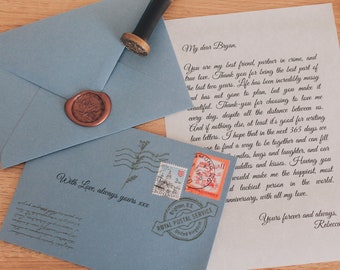 My dear Bryan,
You are my best friend, partner in crime, and
true love. Thank you for being the best part of
the last two years. Life has been incredibly messy
has not gone to plan, but you make it
beautiful. Thank you for choosing to love me
every day, despite all the distance between us.
And if nothing else, at least it's good for writing
love letters. I hope that in the next 365 days we
find a way to be together and can fill
smiles, hugs and laughter, and our
and kisses. Having you
would make me the happiest, most
luckiest person in the world.
anniversary, with all my love.
Yours forever and always,
Rebecca
With Love, always yours xxx
ROYAL POSTAL SERVICE